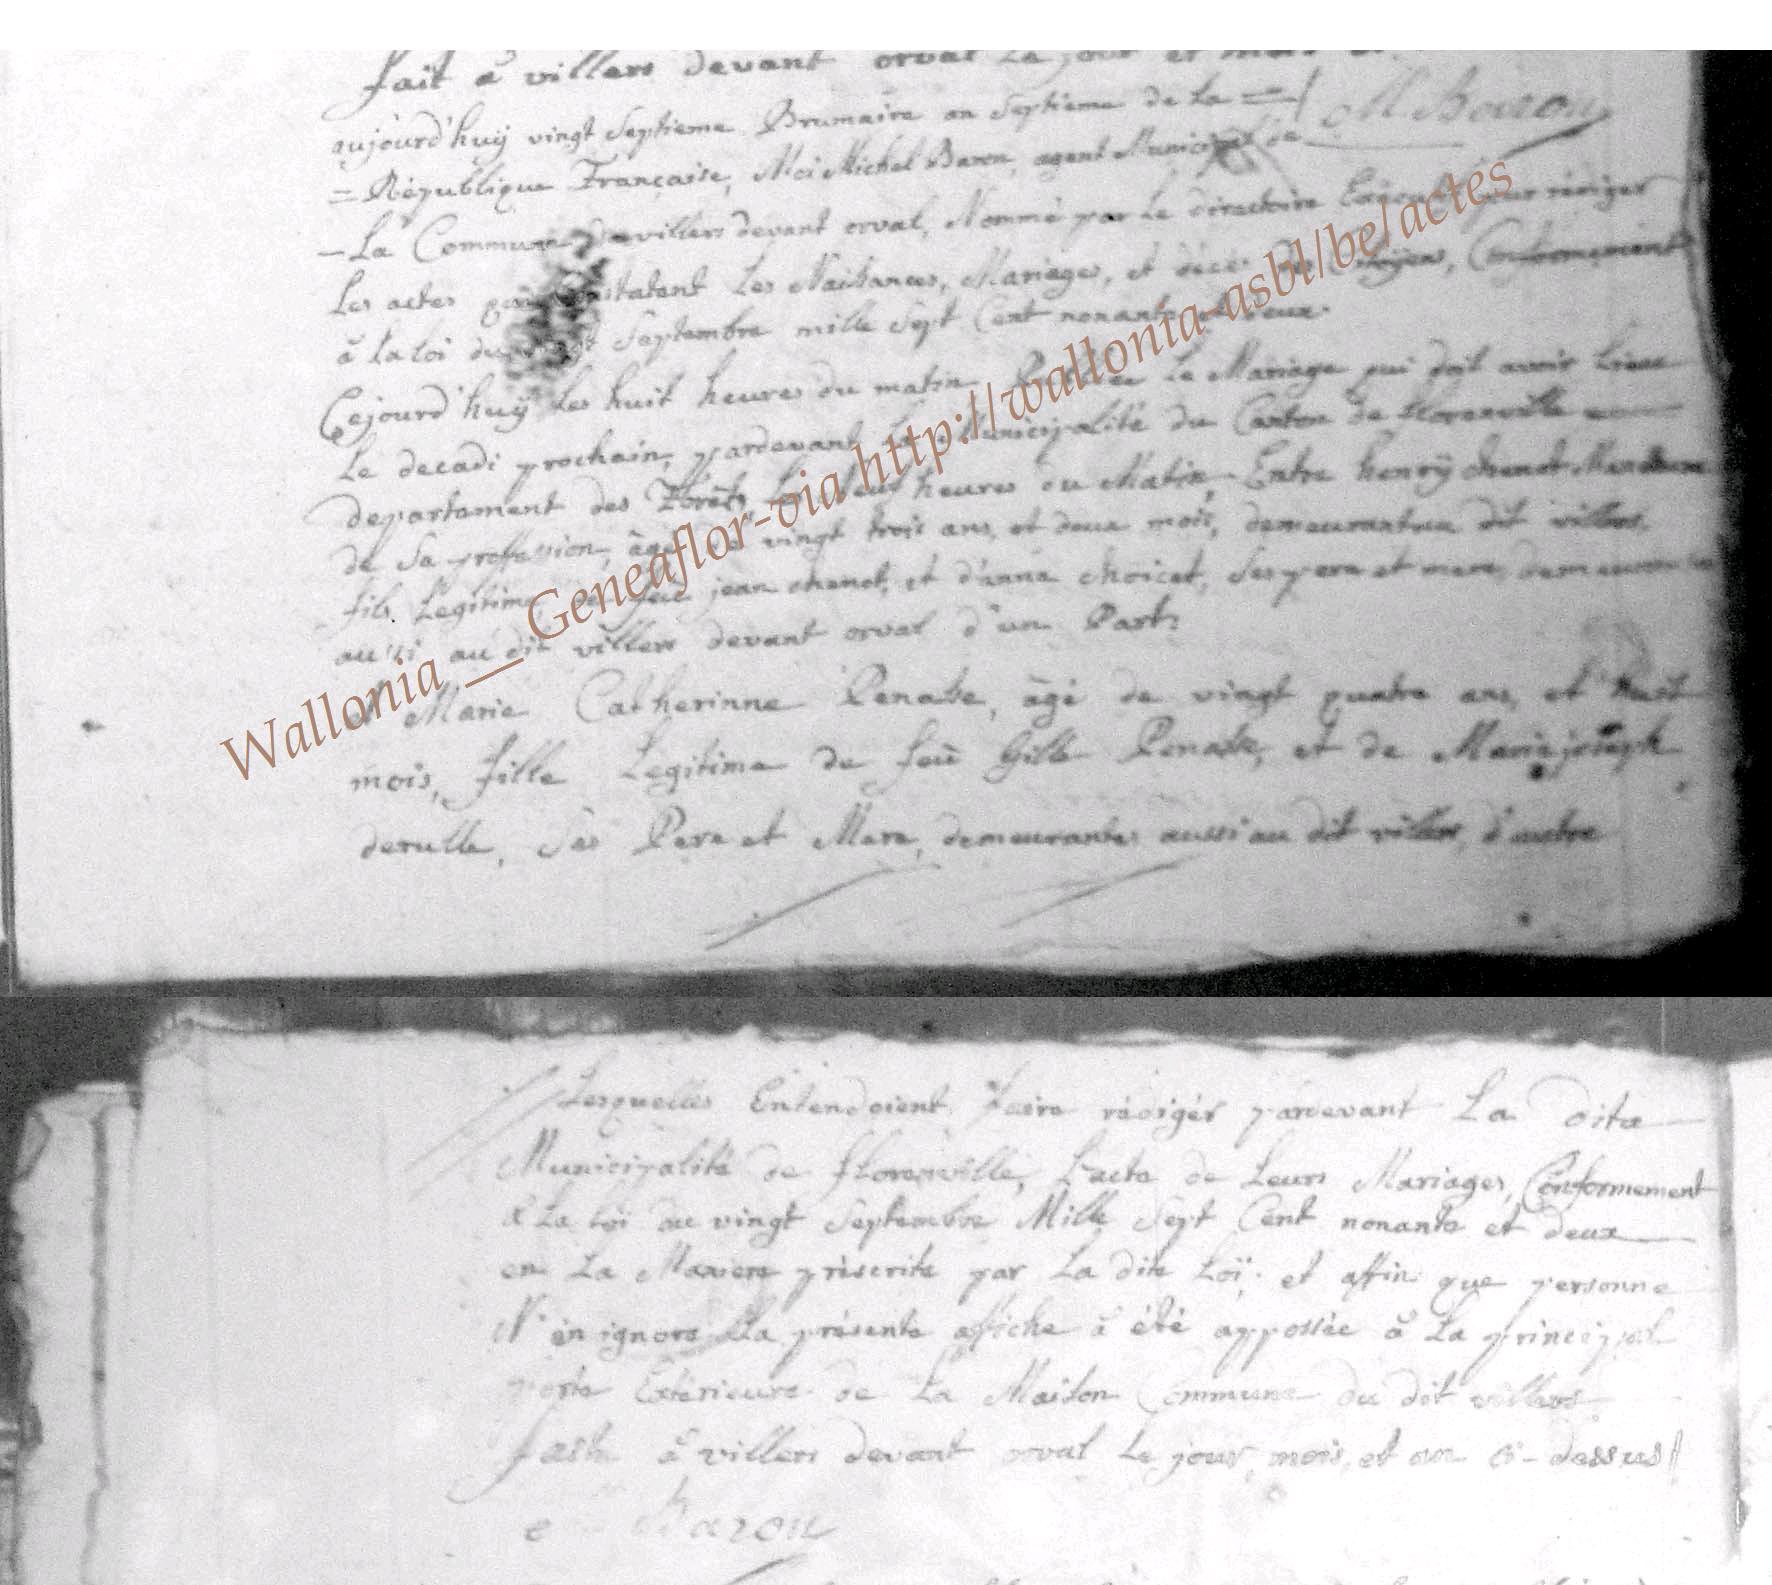 fait a villers devant orval Le jour et mois
aujourd'huÿ vingt Septieme Brumaire an Septieme de La =
M Baron
= République Française, Moi Michel Baron, agent Municipal de
- La Commune de villers devant orval, Nommé par Le directoire pour rédiger
Les actes qui Les Naissances, Mariages, et décès des Citoyens, Conformement
â La Loi du vingt Septembre mille Sept Cent nonante et deux.
Cejourd'huÿ Les huit heures du matin Le Mariage qui doit avoir Lieu
Le decadi prochain, pardevant La Municipalité du Canton de florenville
departement des Forêts, heures du Matin, Entre henrÿ chenot
de Sa profession, âgé de vingt trois ans, et deux mois, demeurant au dit villers,
fils Legitime de feu jean chenot, et d'anne choicet, Ses pere et mere,
aussi au dit villers devant orval d'un Part;
et Marie Catherinne Penasse, âgé de vingt quatre ans, et huit
mois, fille Legitime de feü Gille Penasse, et de Marie joseph
derulle, Ses Pere et Mere, demeurantes aussi au dit villers, d'autre
Wallonia__Geneaflor-via http://wallonia-asbl/be/actes
Lesquelles Entendoient faire rédigér pardevant La dite
Municipalité de florenville, L'acte de Leurs Mariages, Conformement
â La Loi du vingt Septembre Mille Sept Cent nonante et deux
en La Maniere prèscrite par La dite Loï; et affin que personne
N'èn ignore La présente affiche â été appossée â La principal
porte Extérieure de La Maison Commune du dit villers
fait â villers devant orval Le jour, mois, et an ci-dessus
Baron